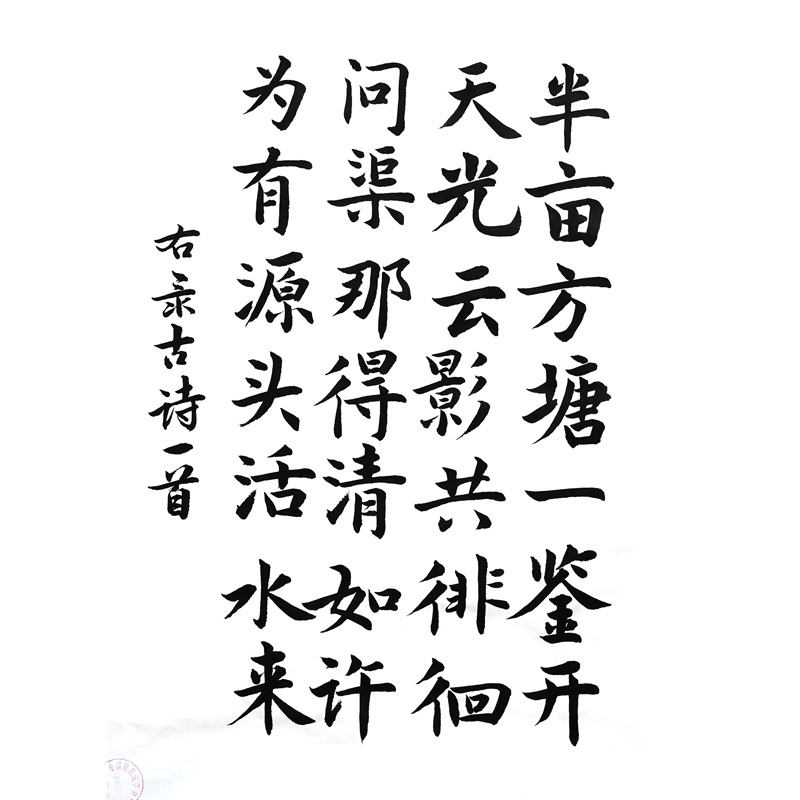 半亩方塘一鉴开
天光云影共徘徊
问渠那得清如许
为有源头活水来
右录古诗一首